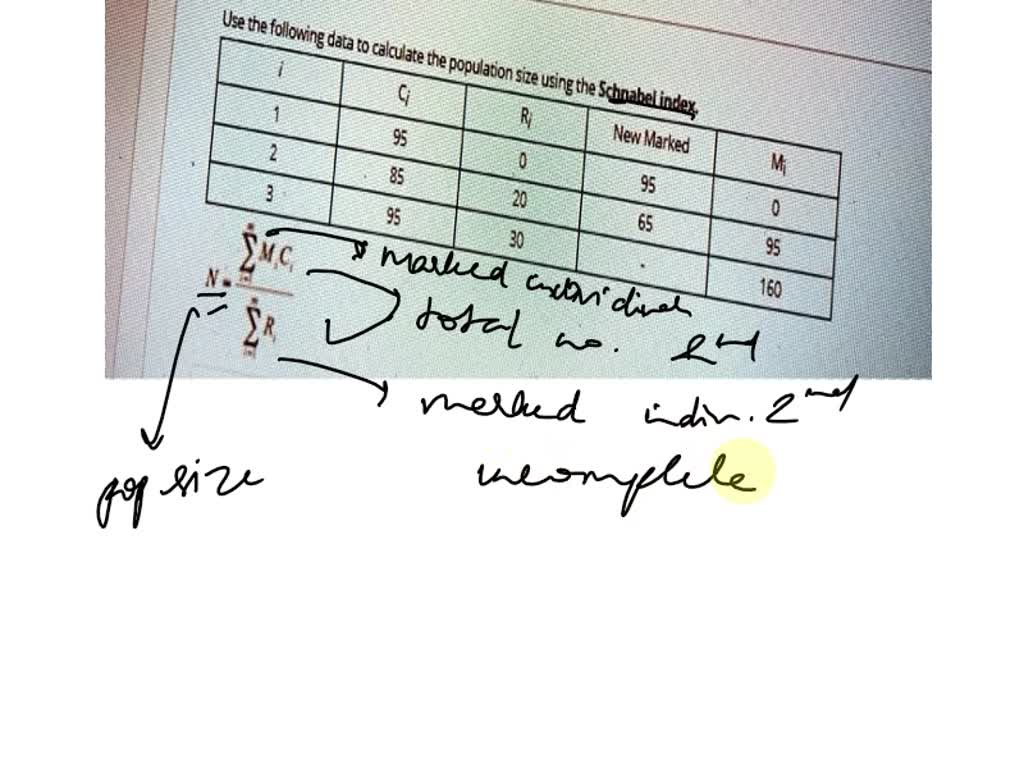 Use the following data to calculate the population size using the Schnabel index.
i Cᵢ Rᵢ New Marked Mᵢ
1 95 0 95 0
2 85 20 65 95
3 95 30 . 160
N = Σ MᵢCᵢ
Σ Rᵢ
marked individuals
total no. 2nd
marked indiv. 2nd
pop size
incomplete